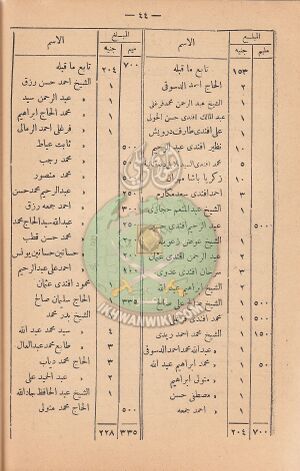 — ٤٤ —
المبلغ
مليم جنيه
الاسم
١٥٣ تابع ما قبله
٢ الحاج احمد الدسوقى
١ الشيخ عبد الرحمن محمد فرغلى
١ عبد المالك افندى حسن
١ على افندى طارف درويش
١٠ نظير افندى عبد
١٠ زكريا باشا مهران
٣ احمد افندى سعد مكارم
٢ الشيخ عبد المنعم حجازى
٥٠٠ عبد الرحيم افندى
١ الشيخ عوض
٢ عبد الرحمن افندى عثمان
٣ افندى عدوى
٢ الشيخ ابراهيم عبد الله
٥٠٠ ١ الشيخ على صالح
٥٠٠ ١ محمد افندى
١٥٠ ١ الشيخ محمد احمد زيدى
» عبدالله محمد احمد الدسوقى
٥٠٠ ٣ » محمد ابراهيم عبد الله
١ » متولى ابراهيم
١ » مصطفى حسن
١ » احمد جمعه
٧٠٠ ٢٠٤
المبلغ
مليم جنيه
الاسم
٧٠٠ ٢٠٤ تابع ما قبله
١ الشيخ احمد حسن رزق
١ » عبد الرحمن سيد
١ الحاج محمد ابراهيم
١ » فرغلى احمد الزمالى
٥٠٠ » ثابت عياط
» محمد رجب
٥٠٠ » محمد منصور
٢٥٠ » عبد الرحيم محمد حسن
» احمد جمعه رزق
» عبدالله سيد الحاج محمد
» محمد حسن قطب
» حسانين حسانين يونس
» احمد على عبد الرحيم
١ محمود افندى عثمان
٣٣٥ الحاج سليمان صالح
الشيخ بدر محمد
٤ » سيد محمد عبد الله
٣ » طايع محمد عبد العال
٣ الحاج محمد دياب
٢ » عبد الحميد على
١ الشيخ عبد الحافظ جادالله
٥٠٠ الحاج محمد متولى
٣٣٥ ٢٢٨
IKHWANWIKI.COM